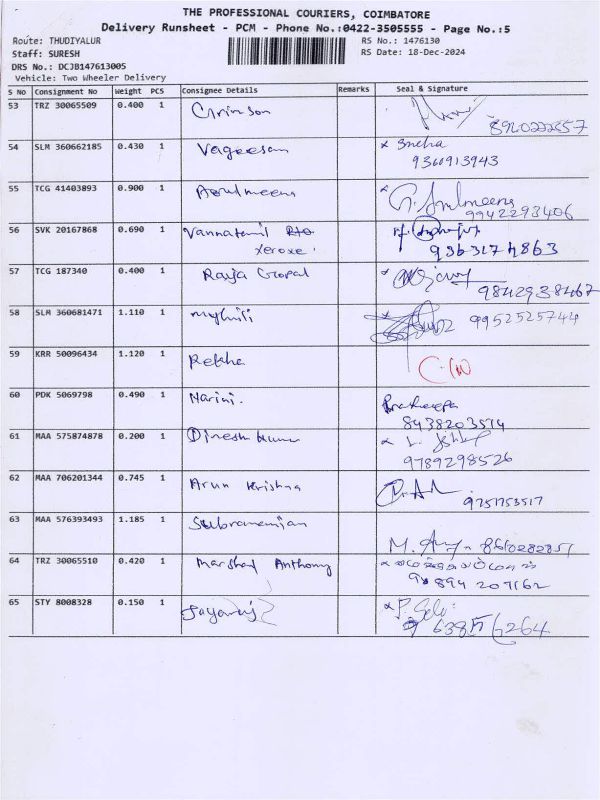 THE PROFESSIONAL COURIERS, COIMBATORE
Delivery Runsheet - PCM - Phone No.:0422-3505555 - Page No.:5
Route: THUDIYALUR
RS No.: 1476130
Staff: SURESH
RS Date: 18-Dec-2024
DRS No.: DCJB147613005
Vehicle: Two Wheeler Delivery
S No Consignment No Weight PCS Consignee Details Remarks Seal & Signature
53 TRZ 30065509 0.400 1 Crimson
54 SLM 360662185 0.430 1 Vageesan x Sneha
9360913943
55 TCG 41403893 0.900 1 Aoulmeena x G. Arulmeena
9942293406
56 SVK 20167868 0.690 1 Vannatamil
xerox.
57 TCG 187340 0.400 1 Raja Gopal x
9842938467
58 SLM 360681471 1.110 1 mythili 9952525744
59 KRR 50096434 1.120 1 Rekha
60 PDK 5069798 0.490 1 Harini.
8438203514
61 MAA 575874878 0.200 1 Dinesh kumar x
9789298526
62 MAA 706201344 0.745 1 Arun Krishna
9751753517
63 MAA 576393493 1.185 1 Subramanian
64 TRZ 30065510 0.420 1 Marshal Anthony x
65 STY 8008328 0.150 1 Jayaraj x P. Selvi